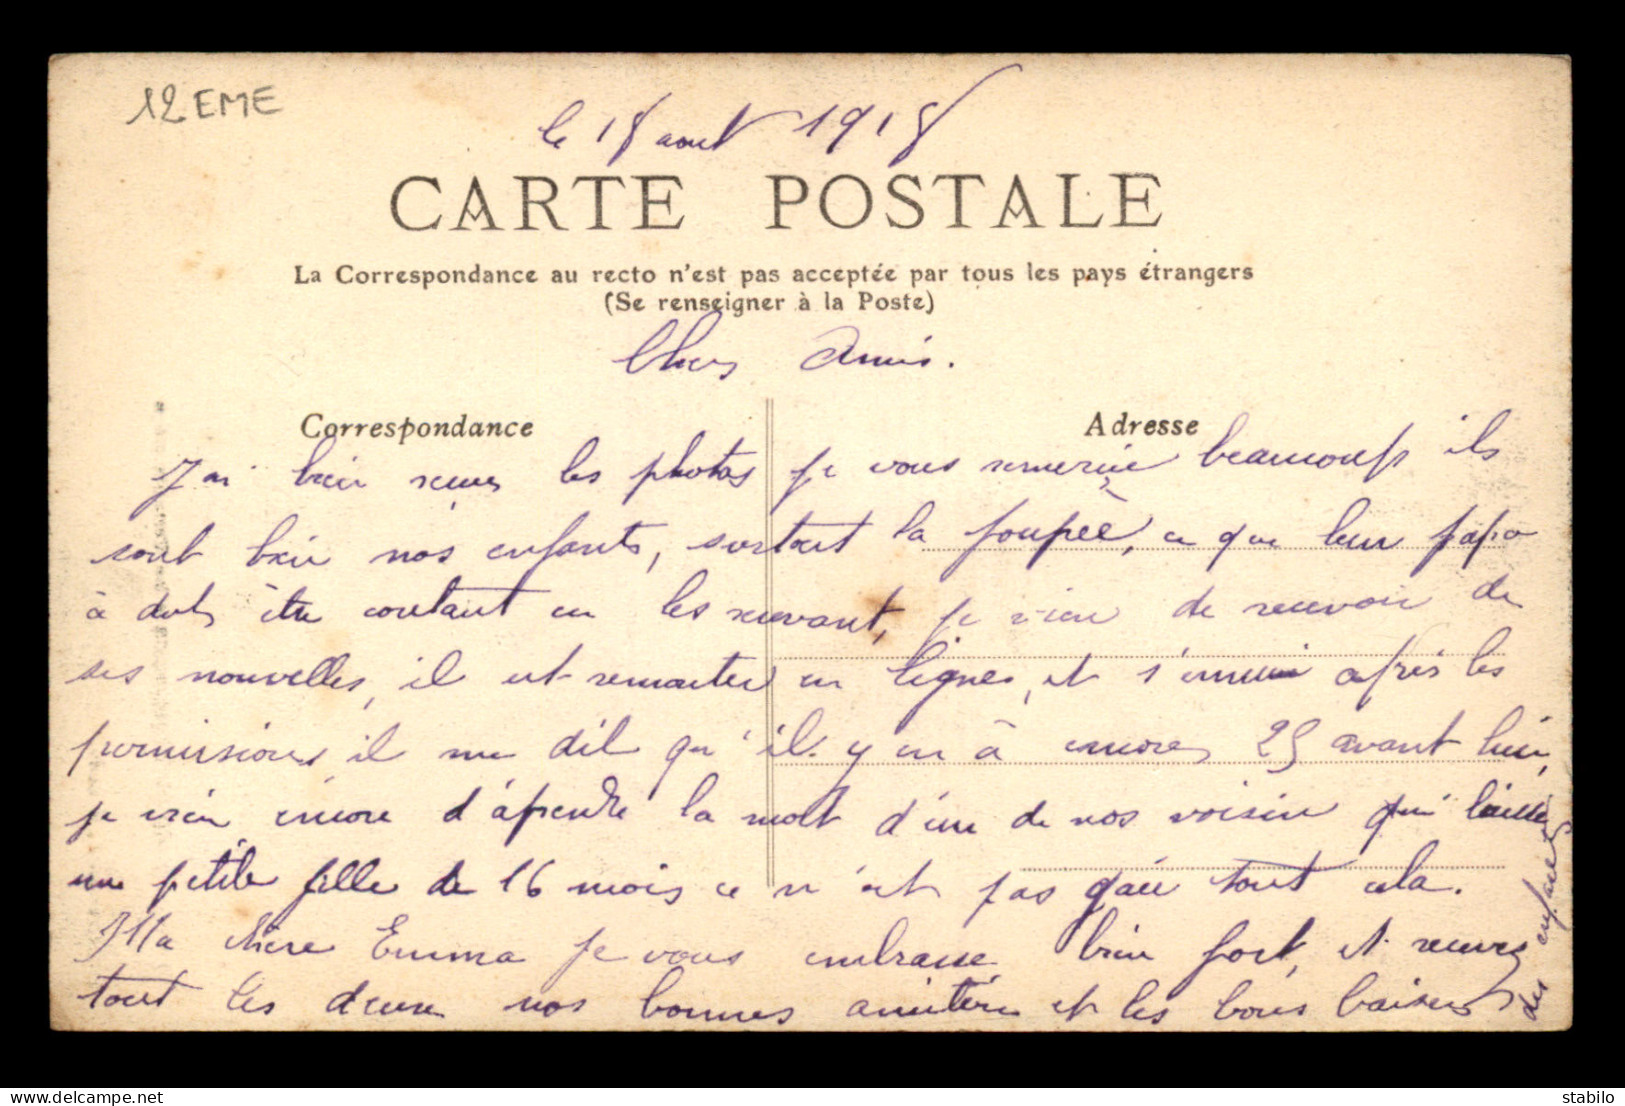 12 EME
le 18 aout 1918
CARTE POSTALE
La Correspondance au recto n'est pas acceptée par tous les pays étrangers
(Se renseigner à la Poste)
Chers Amis.
Correspondance
Adresse
J'ai bien reçus les photos je vous remercie beaucoup ils
sont bien nos enfants, surtout la poupée, ce que leur papa
à dut être contant en les recevant, je vien de recevoir de
ses nouvelles, il est remonter en lignes, et s'ennui après les
permissions, il me dit qu'il y en à encore 25 avant lui,
je vien encore d'aprendre la mort d'un de nos voisin qui laisse
une petite fille de 16 mois ce n'est pas gaie tout cela.
Ma chère Emma je vous embrasse bien fort, et recevez
tout les deux nos bonnes amitiés et les bons baisers
des enfants
delcampe.net
stabilo